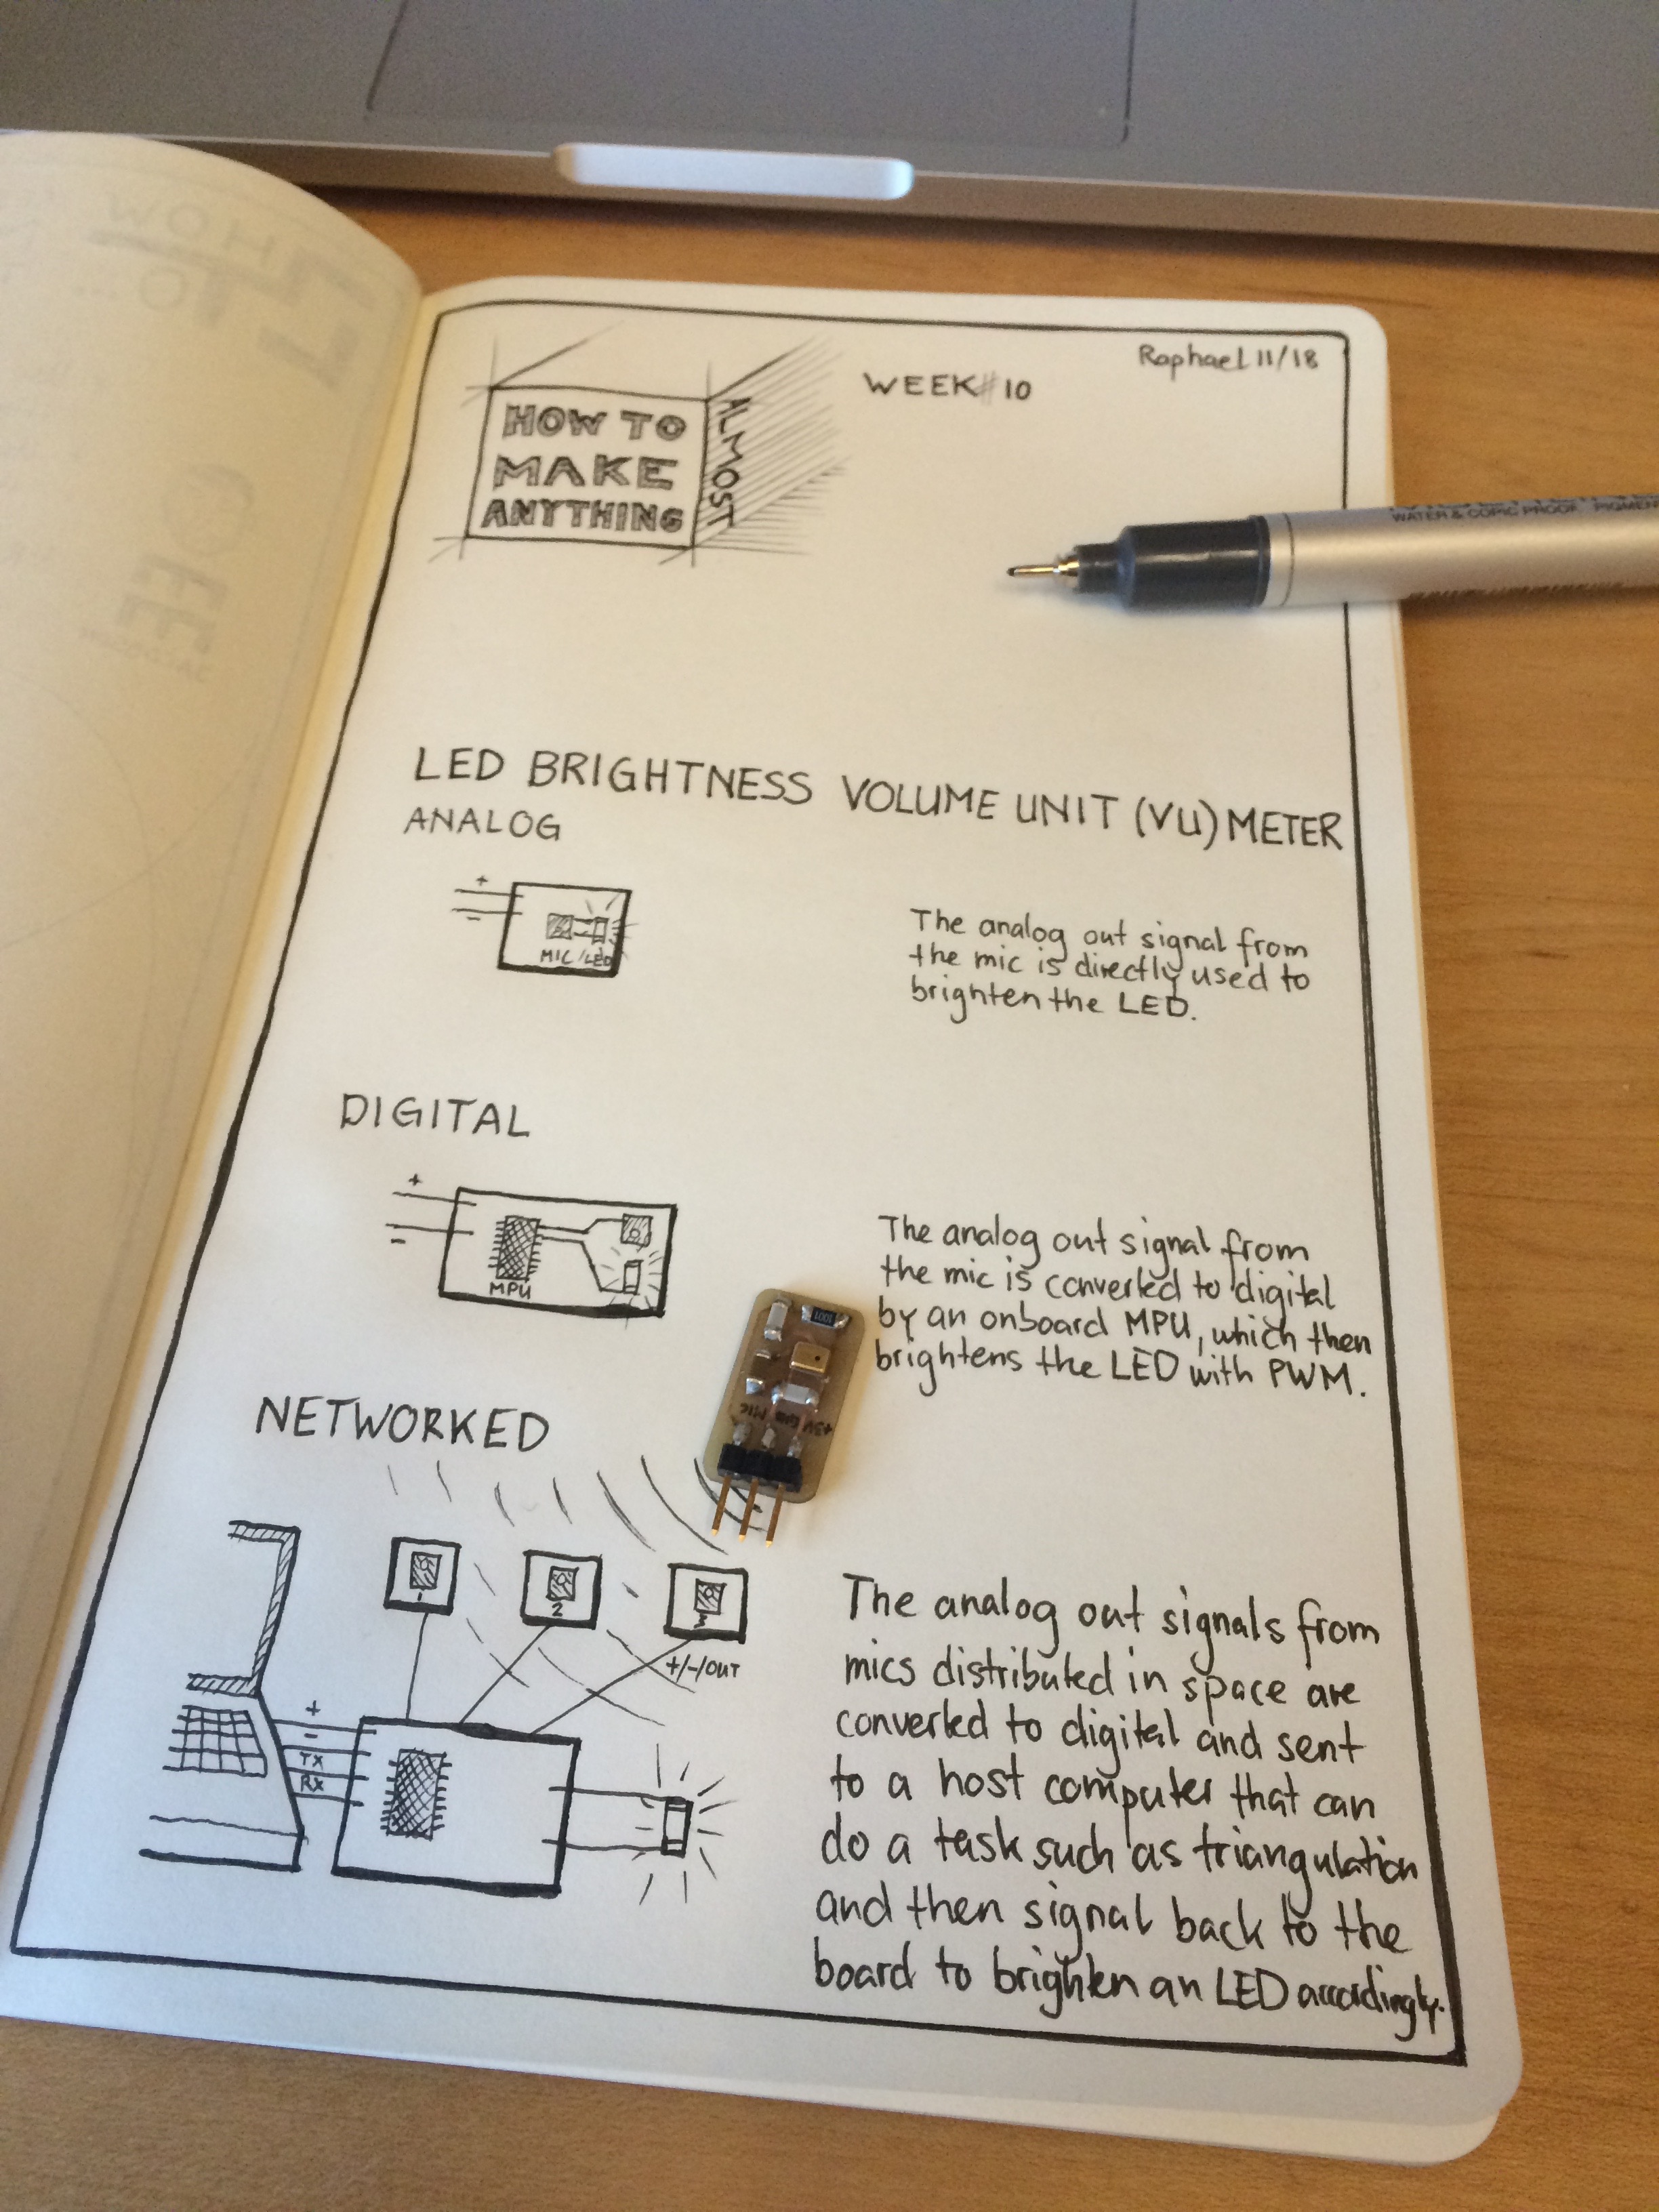 HOW
TO...
HOW TO
MAKE
ANYTHING
ALMOST
WEEK#10
Raphael 11/18
WATER & COPIC PROOF PIGMEN
LED BRIGHTNESS VOLUME UNIT (VU) METER
ANALOG
+
-
MIC/LED
The analog out signal from
the mic is directly used to
brighten the LED.
DIGITAL
+
-
MPU
The analog out signal from
the mic is converted to digital
by an onboard MPU, which then
brightens the LED with PWM.
1001
+3V GND MIC
NETWORKED
1
2
3
+/-/OUT
+
-
TX
RX
The analog out signals from
mics distributed in space are
converted to digital and sent
to a host computer that can
do a task such as triangulation
and then signal back to the
board to brighten an LED accordingly.